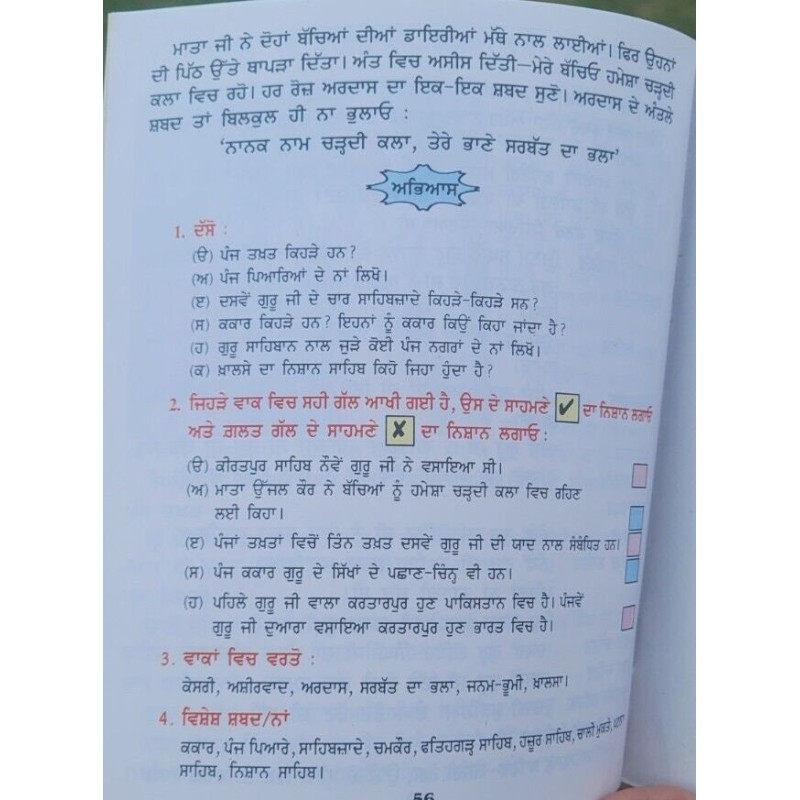 ਮਾਤਾ ਜੀ ਨੇ ਦੋਹਾਂ ਬੱਚਿਆਂ ਦੀਆਂ ਡਾਇਰੀਆਂ ਮੱਥੇ ਨਾਲ ਲਾਈਆਂ। ਫਿਰ ਉਹਨਾਂ
ਦੀ ਪਿੱਠ ਉੱਤੇ ਥਾਪੜਾ ਦਿੱਤਾ। ਅੰਤ ਵਿਚ ਅਸੀਸ ਦਿੱਤੀ—ਮੇਰੇ ਬੱਚਿਓ ਹਮੇਸ਼ਾ ਚੜ੍ਹਦੀ
ਕਲਾ ਵਿਚ ਰਹੋ। ਹਰ ਰੋਜ਼ ਅਰਦਾਸ ਦਾ ਇਕ-ਇਕ ਸ਼ਬਦ ਸੁਣੋ। ਅਰਦਾਸ ਦੇ ਅੰਤਲੇ
ਸ਼ਬਦ ਤਾਂ ਬਿਲਕੁਲ ਹੀ ਨਾ ਭੁਲਾਓ :
'ਨਾਨਕ ਨਾਮ ਚੜ੍ਹਦੀ ਕਲਾ, ਤੇਰੇ ਭਾਣੇ ਸਰਬੱਤ ਦਾ ਭਲਾ'
ਅਭਿਆਸ
1. ਦੱਸੋ :
(ੳ) ਪੰਜ ਤਖ਼ਤ ਕਿਹੜੇ ਹਨ ?
(ਅ) ਪੰਜ ਪਿਆਰਿਆਂ ਦੇ ਨਾਂ ਲਿਖੋ।
(ੲ) ਦਸਵੇਂ ਗੁਰੂ ਜੀ ਦੇ ਚਾਰ ਸਾਹਿਬਜ਼ਾਦੇ ਕਿਹੜੇ-ਕਿਹੜੇ ਸਨ ?
(ਸ) ਕਕਾਰ ਕਿਹੜੇ ਹਨ ? ਇਹਨਾਂ ਨੂੰ ਕਕਾਰ ਕਿਉਂ ਕਿਹਾ ਜਾਂਦਾ ਹੈ ?
(ਹ) ਗੁਰੂ ਸਾਹਿਬਾਨ ਨਾਲ ਜੁੜੇ ਕੋਈ ਪੰਜ ਨਗਰਾਂ ਦੇ ਨਾਂ ਲਿਖੋ।
(ਕ) ਖ਼ਾਲਸੇ ਦਾ ਨਿਸ਼ਾਨ ਸਾਹਿਬ ਕਿਹੋ ਜਿਹਾ ਹੁੰਦਾ ਹੈ ?
2. ਜਿਹੜੇ ਵਾਕ ਵਿਚ ਸਹੀ ਗੱਲ ਆਖੀ ਗਈ ਹੈ, ਉਸ ਦੇ ਸਾਹਮਣੇ ✔ ਦਾ ਨਿਸ਼ਾਨ ਲਗਾਓ
ਅਤੇ ਗ਼ਲਤ ਗੱਲ ਦੇ ਸਾਹਮਣੇ ✘ ਦਾ ਨਿਸ਼ਾਨ ਲਗਾਓ :
(ੳ) ਕੀਰਤਪੁਰ ਸਾਹਿਬ ਨੌਵੇਂ ਗੁਰੂ ਜੀ ਨੇ ਵਸਾਇਆ ਸੀ।
(ਅ) ਮਾਤਾ ਉੱਜਲ ਕੌਰ ਨੇ ਬੱਚਿਆਂ ਨੂੰ ਹਮੇਸ਼ਾ ਚੜ੍ਹਦੀ ਕਲਾ ਵਿਚ ਰਹਿਣ
ਲਈ ਕਿਹਾ।
(ੲ) ਪੰਜਾਂ ਤਖ਼ਤਾਂ ਵਿਚੋਂ ਤਿੰਨ ਤਖ਼ਤ ਦਸਵੇਂ ਗੁਰੂ ਜੀ ਦੀ ਯਾਦ ਨਾਲ ਸੰਬੰਧਿਤ ਹਨ।
(ਸ) ਪੰਜ ਕਕਾਰ ਗੁਰੂ ਦੇ ਸਿੱਖਾਂ ਦੇ ਪਛਾਣ-ਚਿੰਨ੍ਹ ਵੀ ਹਨ।
(ਹ) ਪਹਿਲੇ ਗੁਰੂ ਜੀ ਵਾਲਾ ਕਰਤਾਰਪੁਰ ਹੁਣ ਪਾਕਿਸਤਾਨ ਵਿਚ ਹੈ। ਪੰਜਵੇਂ
ਗੁਰੂ ਜੀ ਦੁਆਰਾ ਵਸਾਇਆ ਕਰਤਾਰਪੁਰ ਹੁਣ ਭਾਰਤ ਵਿਚ ਹੈ।
3. ਵਾਕਾਂ ਵਿਚ ਵਰਤੋ :
ਕੇਸਰੀ, ਅਸ਼ੀਰਵਾਦ, ਅਰਦਾਸ, ਸਰਬੱਤ ਦਾ ਭਲਾ, ਜਨਮ-ਭੂਮੀ, ਖ਼ਾਲਸਾ।
4. ਵਿਸ਼ੇਸ਼ ਸ਼ਬਦ/ਨਾਂ
ਕਕਾਰ, ਪੰਜ ਪਿਆਰੇ, ਸਾਹਿਬਜ਼ਾਦੇ, ਚਮਕੌਰ, ਫਤਿਹਗੜ੍ਹ ਸਾਹਿਬ, ਹਜ਼ੂਰ ਸਾਹਿਬ, ਚਾਲੀ ਮੁਕਤੇ,
ਸਾਹਿਬ, ਨਿਸ਼ਾਨ ਸਾਹਿਬ।
56